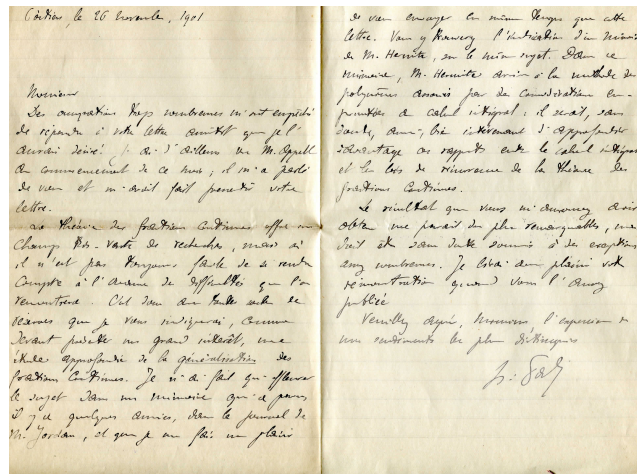 Poitiers, le 26 novembre, 1901
Monsieur
Des occupations trop nombreuses m'ont empêché
de répondre à votre lettre aussitôt que je l'
aurais désiré. J'ai d'ailleurs vu M. Appell
au commencement de ce mois; il m'a parlé
de vous et m'avait fait prendre votre
lettre.
La théorie des fractions continues offre un
champ très vaste de recherches, mais où
il n'est pas toujours facile de se rendre
compte à l'avance des difficultés que l'on
rencontrera. C'est donc sous toute
réserves que je vous indiquerai, comme
devant présenter un grand intérêt, une
étude approfondie de la généralisation des
fractions continues. Je n'ai fait qu'effleurer
le sujet dans un mémoire qui a paru
il y a quelques années, dans le journal de
M. Jordan, et que je me fais un plaisir
de vous envoyer en même temps que cette
lettre. Vous y trouverez l'indication d'un mémoire
de M. Hermite, sur le même sujet. Dans ce
mémoire, M. Hermite arrive à la méthode des
polynômes associés par des considérations em-
pruntées au calcul intégral; il serait, sans
doute, aussi, bien intéressant d'approfondir
davantage ces rapports entre le calcul intégral
et les lois de récurrence de la théorie des
fractions continues.
Le résultat que vous m'annoncez avoir
obtenu me paraît des plus remarquables, mais
doit être sans doute soumis à des exceptions
assez nombreuses. Je lirai avec plaisir votre
démonstration quand vous l'aurez
publiée
Veuillez agréer, Monsieur, l'expression de
mes sentiments les plus distingués